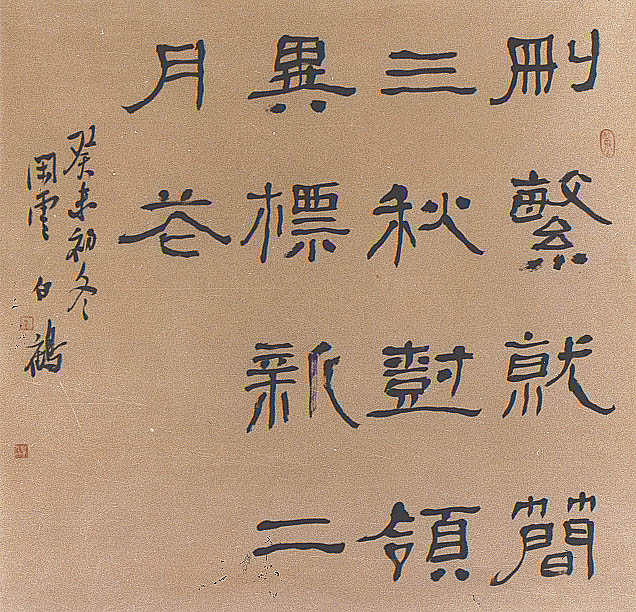 刪繁就簡
三秋尌領
異標新二
月花
癸未初冬
閑雲白鶴